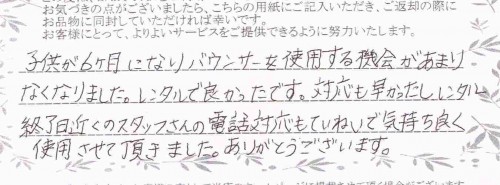 お気づきの点がございましたら、こちらの用紙にご記入いただき、ご返却の際に
お品物に同封していただければ幸いです。
お客様にとって、よりよいサービスをご提供できるように努力いたします。
子供が6ヶ月になりバウンサーを使用する機会があまり
なくなりました。レンタルで良かったです。対応も早かったし、レンタル
終了日近くのスタッフさんの電話対応もていねいで気持ち良く
使用させて頂きました。ありがとうございます。